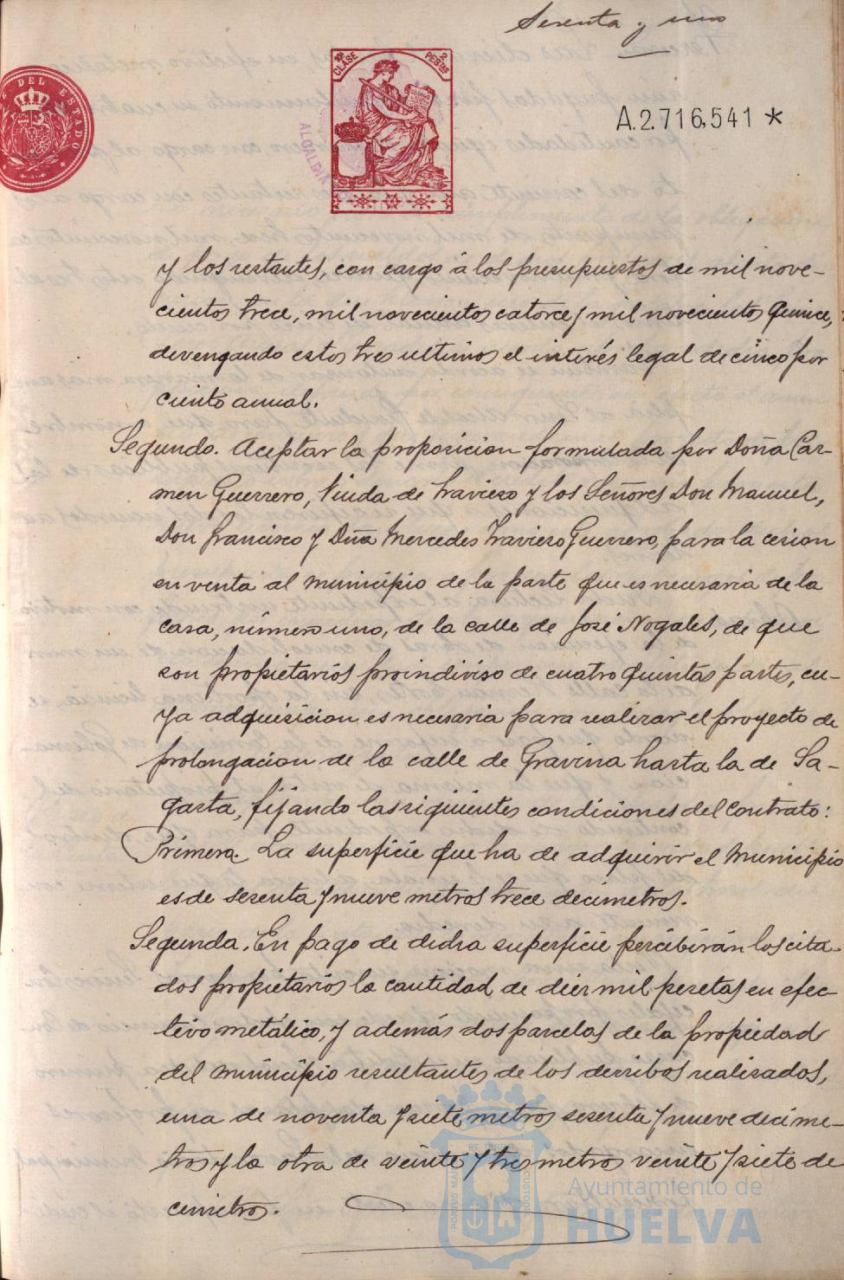 Sesenta y uno
DEL ESTADO
10ª CLASE
2 PESETAS
ALCALDIA
A.2.716,541 *
y los restantes, con cargo á los presupuestos de mil nove-
cientos trece, mil novecientos catorce y mil novecientos quince,
devengando estos tres ultimos el interés legal de cinco por
ciento anual.
Segundo. Aceptar la proposicion formulada por Doña Car-
men Guerrero, Viuda de Travieso y los Señores Don Manuel,
Don Francisco y Dña Mercedes Travieso Guerrero, para la cesion
en venta al Municipio de la parte que es necesaria de la
casa, número uno, de la calle de José Nogales, de que
son propietarios proindiviso de cuatro quintas partes, cu-
ya adquisicion es necesaria para realizar el proyecto de
prolongacion de la calle de Gravina hasta la de Sa-
gasta, fijando las siguientes condiciones del contrato:
Primera. La superficie que ha de adquirir el Municipio
es de sesenta y nueve metros trece decimetros.
Segunda. En pago de dicha superficie percibirán los cita-
dos propietarios la cantidad de diez mil pesetas en efec-
tivo metálico, y además dos parcelas de la propiedad
del Municipio resultantes de los derribos realizados,
una de noventa y siete metros sesenta y nueve decime-
tros y la otra de veinte y tres metros veinte y siete de
cimetros.
Ayuntamiento de
HUELVA